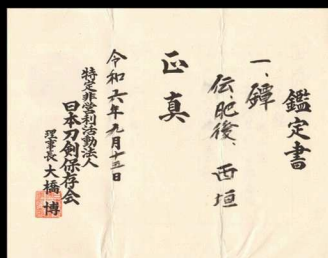 鑑定書
一、鐔
伝、肥後、西垣
正真
令和六年九月十三日
特定非営利活動法人
日本刀剣保存会
理事長 大橋 博